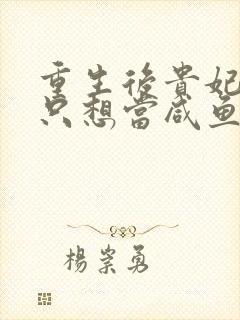 重生後貴妃
只想當咸鱼
楊崇勇